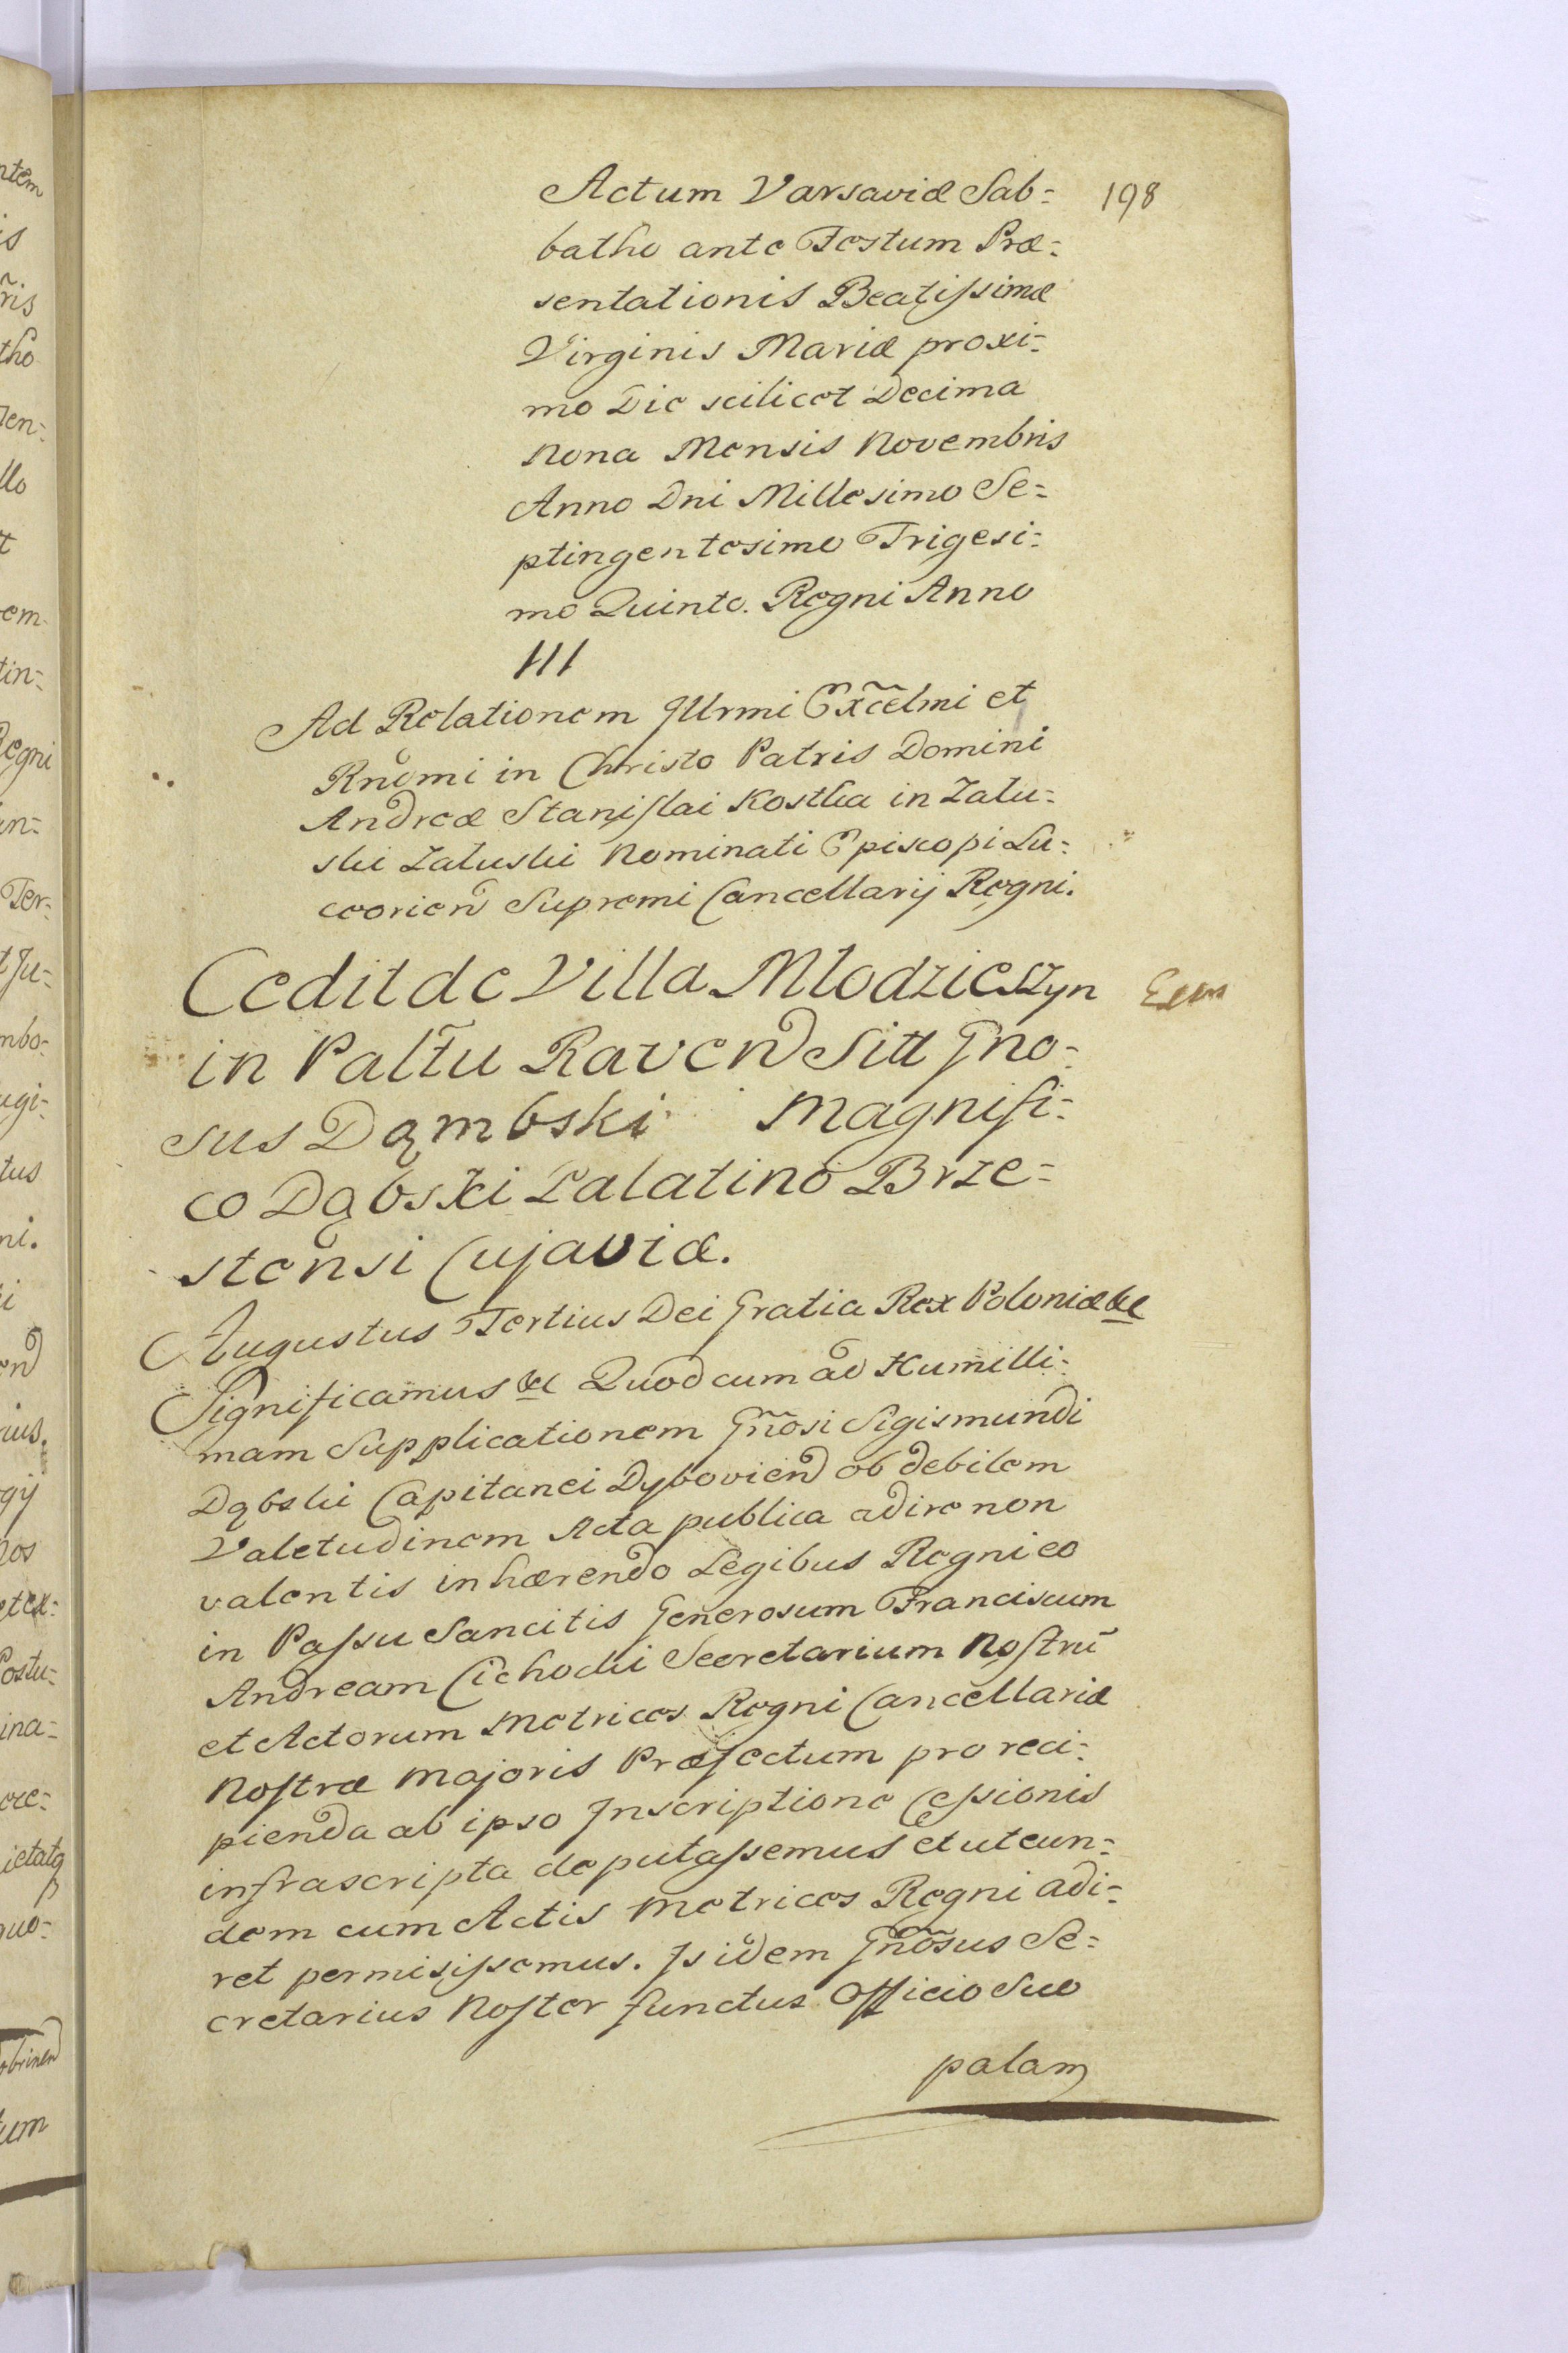 Actum Varsaviæ Sab=
198
batho ante Festum Præ=
sentationis Beatissimæ
Virginis Mariæ proxi=
mo Die scilicet Decima
Nona Mensis Novembris
Anno Dni Millesimo Se=
ptingentesimo Trigesi=
mo Quinto. Regni Anno
III
Ad Relationem Jllrmi Exc̃elmi et
Rndmi in Christo Patris Domini
Andreæ Stanislai Kostka in Zału=
ski Załuski Nominati Episcopi Lu=
ceorien Supremi Cancellarij Regni.
Cedit de Villa Młodzieszyn
in Paltũ Raven Sitt Gno=
sus Dąmbski Magnifi=
co Dąbski Palatino Brze=
stensi Cujaviæ.
Augustus Tertius Dei Gratia Rex Poloniæ &c
Significamus &c Quod cum ad Humilli=
mam Supplicationem Gñosi Sigismundi
Dąbski Capitanei Dybovien ob debilem
Valetudinem Acta publica adire non
valentis inhærendo Legibus Regni eo
in Passu Sancitis Generosum Franciscum
Andream Cichocki Secretarium Nostrũ
et Actorum Metrices Regni Cancellariæ
Nostræ Majoris Præfectum pro reci=
pienda ab ipso Jnscriptione Cessionis
infrascripta deputassemus et ut eun=
dem cum Actis Metrices Regni adi=
ret permisissemus. Js idem Gñosus Se=
cretarius Noster functus Officio Suo
palam